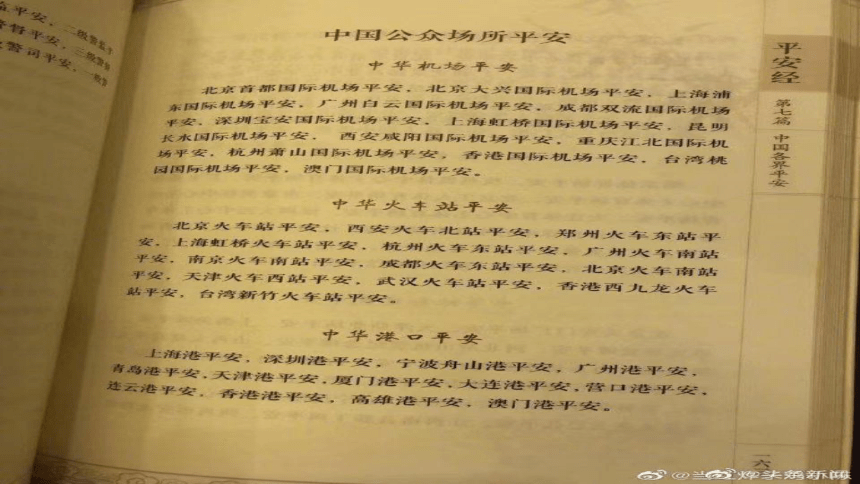 监平安，二级警监平
督平安，三级警督
警司平安，一级警
中国公众场所平安
中华机场平安
北京首都国际机场平安，北京大兴国际机场平安，上海浦
东国际机场平安，广州白云国际机场平安，成都双流国际机场
平安，深圳宝安国际机场平安，上海虹桥国际机场平安，昆明
长水国际机场平安，西安咸阳国际机场平安，重庆江北国际机
场平安，杭州萧山国际机场平安，香港国际机场平安，台湾桃
园国际机场平安，澳门国际机场平安。
中华火车站平安
北京火车站平安，西安火车北站平安，郑州火车东站平
安，上海虹桥火车站平安，杭州火车东站平安，广州火车南站
平安，南京火车南站平安，成都火车东站平安，北京火车南站
平安，天津火车西站平安，武汉火车站平安，香港西九龙火车
站平安，台湾新竹火车站平安。
中华港口平安
上海港平安，深圳港平安，宁波舟山港平安，广州港平安，
青岛港平安，天津港平安，厦门港平安，大连港平安，营口港平安，
连云港平安，香港港平安，高雄港平安，澳门港平安。
平安经
第七篇 中国各界平安
一六